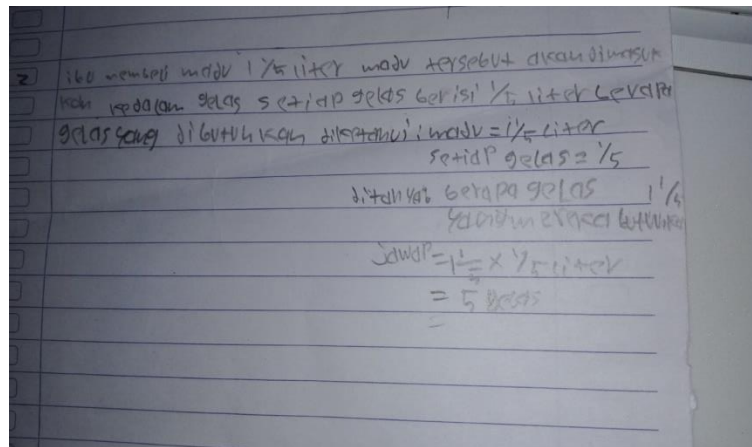 2 ibu membeli madu 1 1/5 liter madu tersebut akan dimasuk
kan kedalam gelas setiap gelas berisi 1/5 liter berapa
gelas yang dibutuhkan diketahui: madu = 1 1/5 liter
setiap gelas = 1/5
ditanya: berapa gelas 1 1/5
butuhkan
Jawab = 1 1/5 x 1/5 liter
= 5 gelas
=